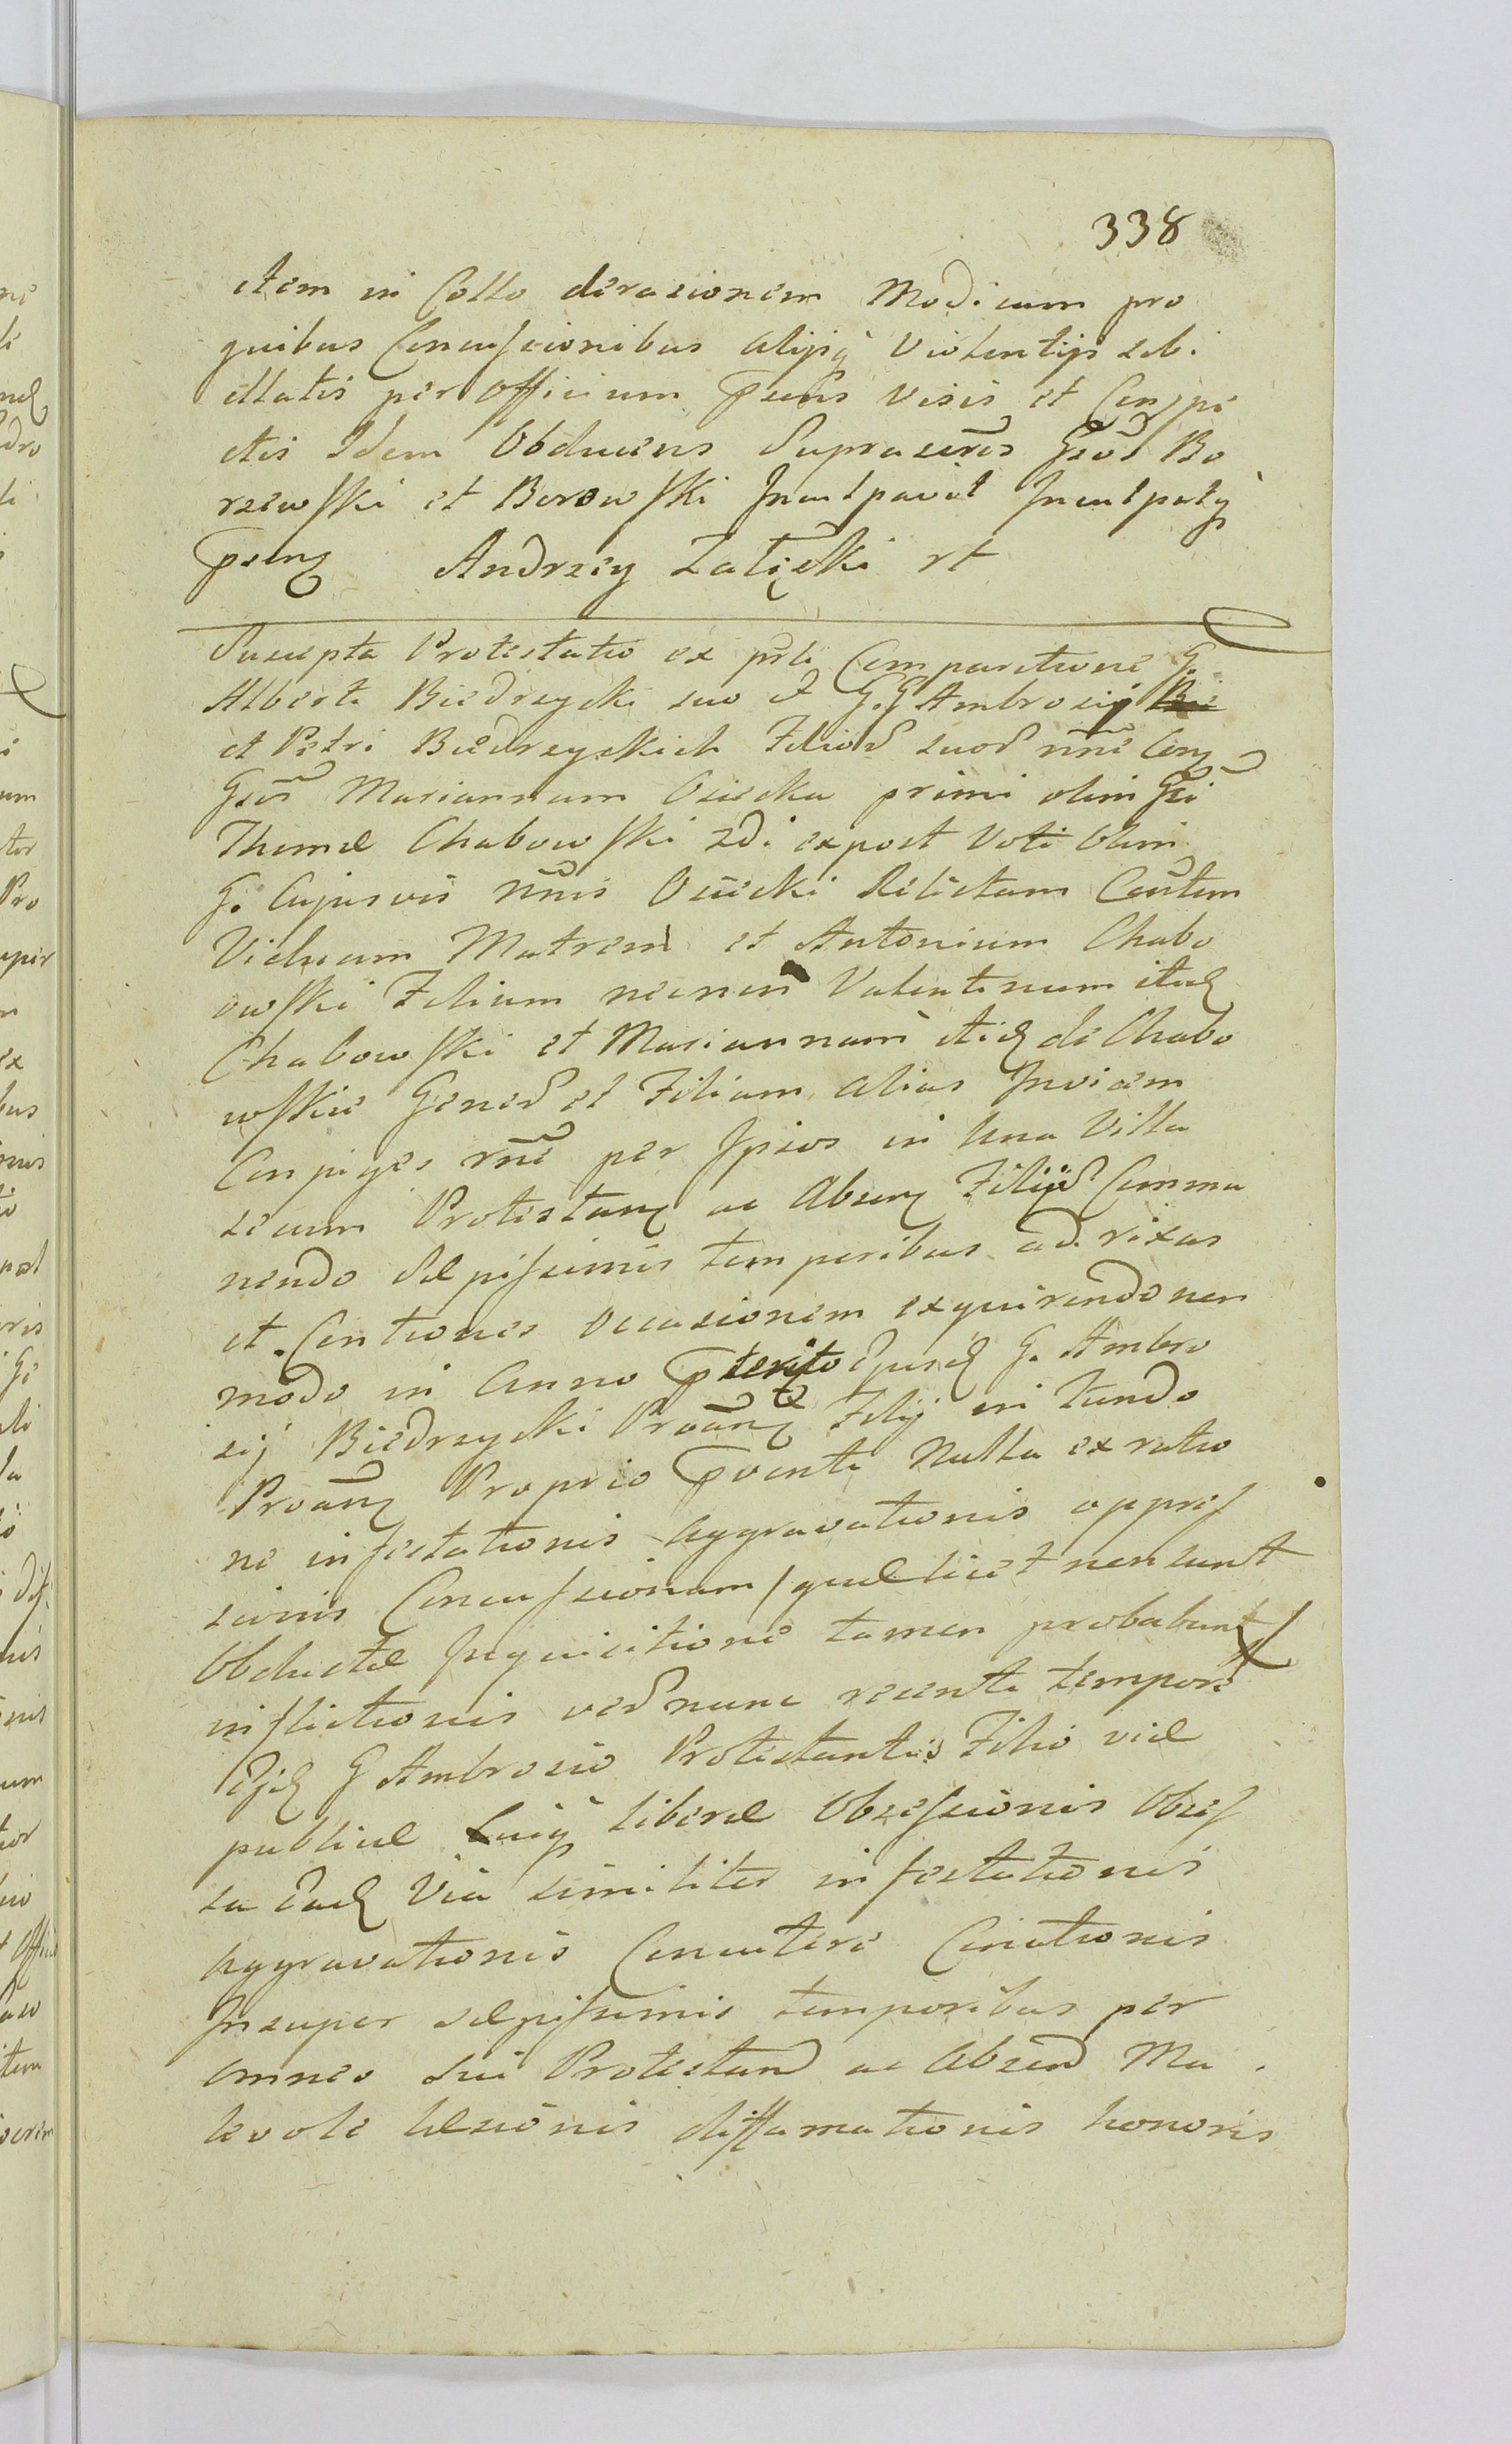 338
item in Collo derasionem Modicum pro
quibus Concussionibus alijsq Violentijs sibi
illatis per Officium psens Visis et Conspe
ctis Idem Obducens Suprascrios Gsos Bo
rzewski et Borowski Inculpavit Inculpatq
psenz Andrzey Załęcki rt
Suscepta Protestatio ex psli Comparitione G.
Alberti Biedrzycki suo et G.G Ambrosij
et Petri Biedrzyckich Filiod suod nne Conz
Gsam Mariannam Osiecka primi olim Gsi
Thomæ Chabowski 2di expost Voti Olim
G. Cujusvis nnis Osiecki Relictam Coustem
Viduam Matrem et Antonium Chabo
owski Filium necnon Valentinum itid
Chabowski et Mariannam itid de Chabo
wskie Gened et Filiam alias Invicem
Conjuges rne per Ipsos in Una Villa
secum Protestanz ac Absenz Filijs Comma
nendo Sæpissimis temporibus ad rixas
et Contiones occasionem exquirendo non
modo in Anno pterito Ejusd G. Ambro
sij Biedrzycki Proanz Filij in Fundo
Proanz Proprio pventi Nulla ex ratio
ne infestationis aggravationis oppres
sionis Concussionum / quæ licet non sunt
Obductæ Inquisitione tamen probabunt /
inflictionis ved nunc recenti tempore
Ejd G Ambrosio Protestantis Filio viæ
publicæ Cuiq liberæ Obsessionis Obses
sa Ead Via similiter infestationis
Aggravationis Concutere Conationis
Insuper sæpissimis temporibus per
omnes sui Protestand ac Absend Ma
levole læsionis diffamationis honoris